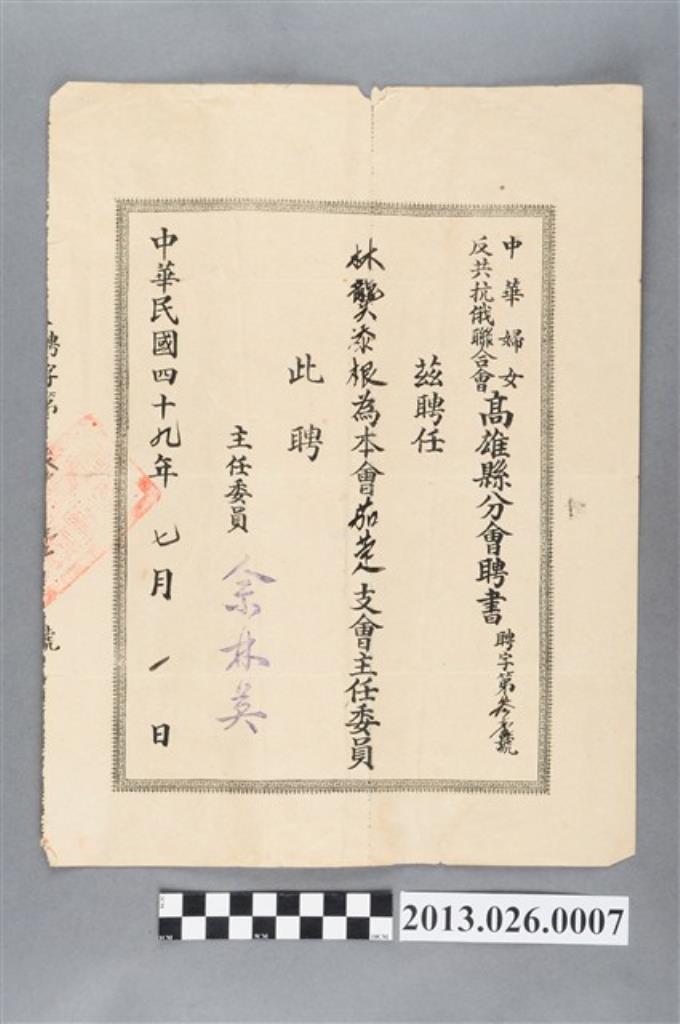 中華婦女
反共抗俄聯合會
高雄縣分會聘書
聘字第叁壹號
茲聘任
林龔添根為本會茄萣支會主任委員
此聘
主任委員
余林英
中華民國四十九年 七月 一日
聘字第
號
2013.026.0007